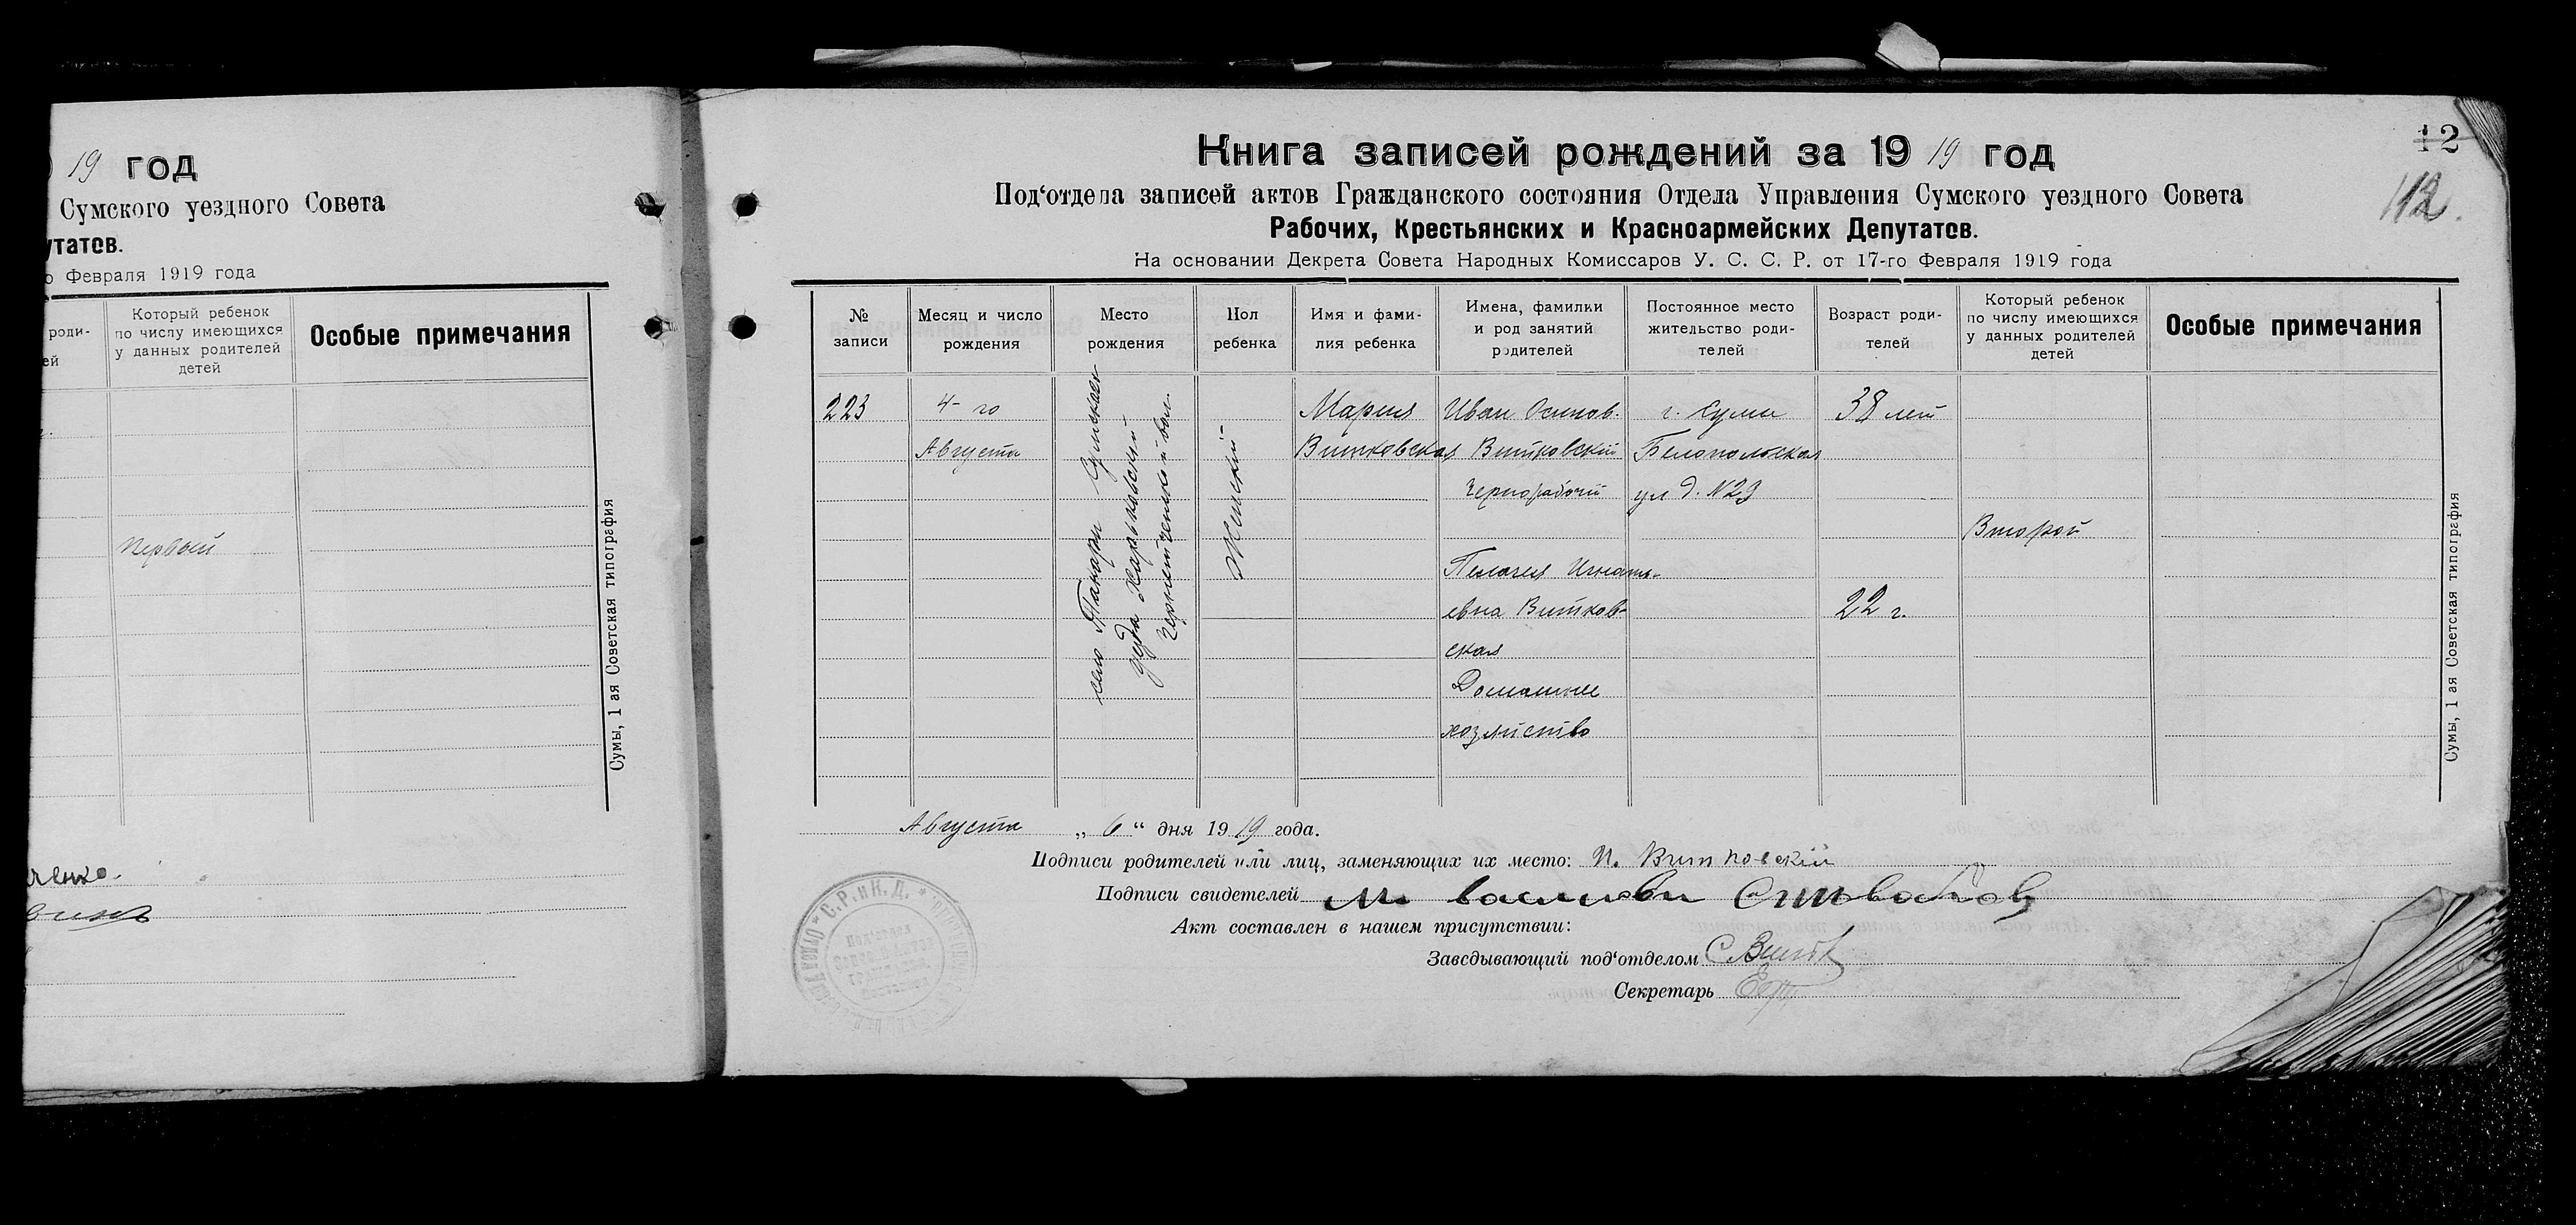 19 год
Сумского уездного Совета
утатов.
о Февраля 1919 года
роди-
ей
Который ребенок
по числу имеющихся
у данных родителей
детей
Особые примечания
Первый
Сумы, 1 ая Советская типография
12
112.
Книга записей рождений за 1919 год
Под‘отдела записей актов Гражданского состояния Отдела Управления Сумского уездного Совета
Рабочих, Крестьянских и Красноармейских Депутатов.
На основании Декрета Совета Народных Комиссаров У. С. С. Р. от 17-го Февраля 1919 года
№
записи
Месяц и число
рождения
Место
рождения
Пол
ребенка
Имя и фами-
лия ребенка
Имена, фамилии
и род занятий
родителей
Постоянное место
жительство роди-
телей
Возраст роди-
телей
Который ребенок
по числу имеющихся
у данных родителей
детей
Особые примечания
223
4-го
Августа
село
уезда Харьковской
Женский
Мария
Витковская
Иван Осипов.
Витковскій
Чернорабочий
Пелагея Игнать-
евна Витков-
ская
Домашнее
хозяйство
г. Сумы
Белопольская
ул д. №23
38 лет
22 г.
Второй
Сумы, 1 ая Советская типография
Августа „ 6 “ дня 1919 года.
Подписи родителей или лиц, заменяющих их место: И. Витковскій
Подписи свидетелей
Акт составлен в нашем присутствии:
Заведывающий под‘отделом
Секретарь
С. Р. и К. Д.